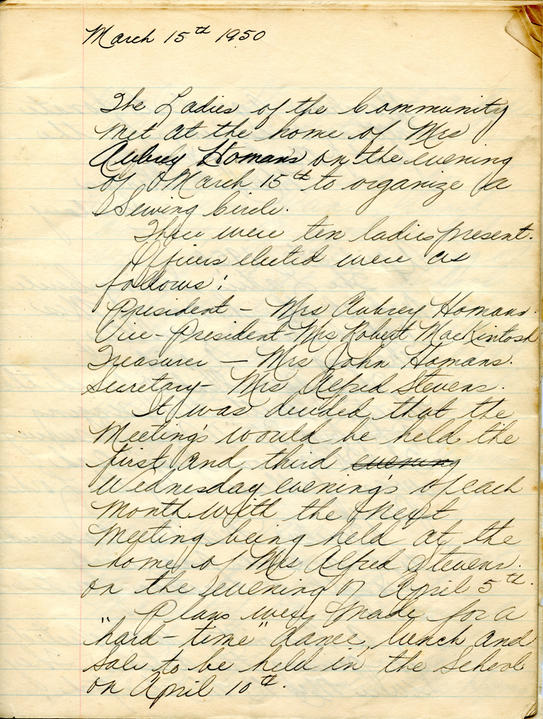 March 15th 1950
The Ladies of the Community
met at the home of Mrs
Aubrey Homans on the evening
of March 15th to organize a
Sewing Circle.
There were ten ladies present.
Officers elected were as
follows:
President - Mrs Aubrey Homans.
Vice-President - Mrs Robert MacKintosh
Treasurer — Mrs John Homans.
Secretary - Mrs Alfred Stevens.
It was decided that the
Meeting's would be held the
first and third evening
Wednesday evening's of each
month with the next
meeting being held at the
home of Mrs Alfred Stevens.
on the evening of April 5th.
Plans were made for a
"hard-time" dance, lunch and
sale to be held in the School
on April 10th.